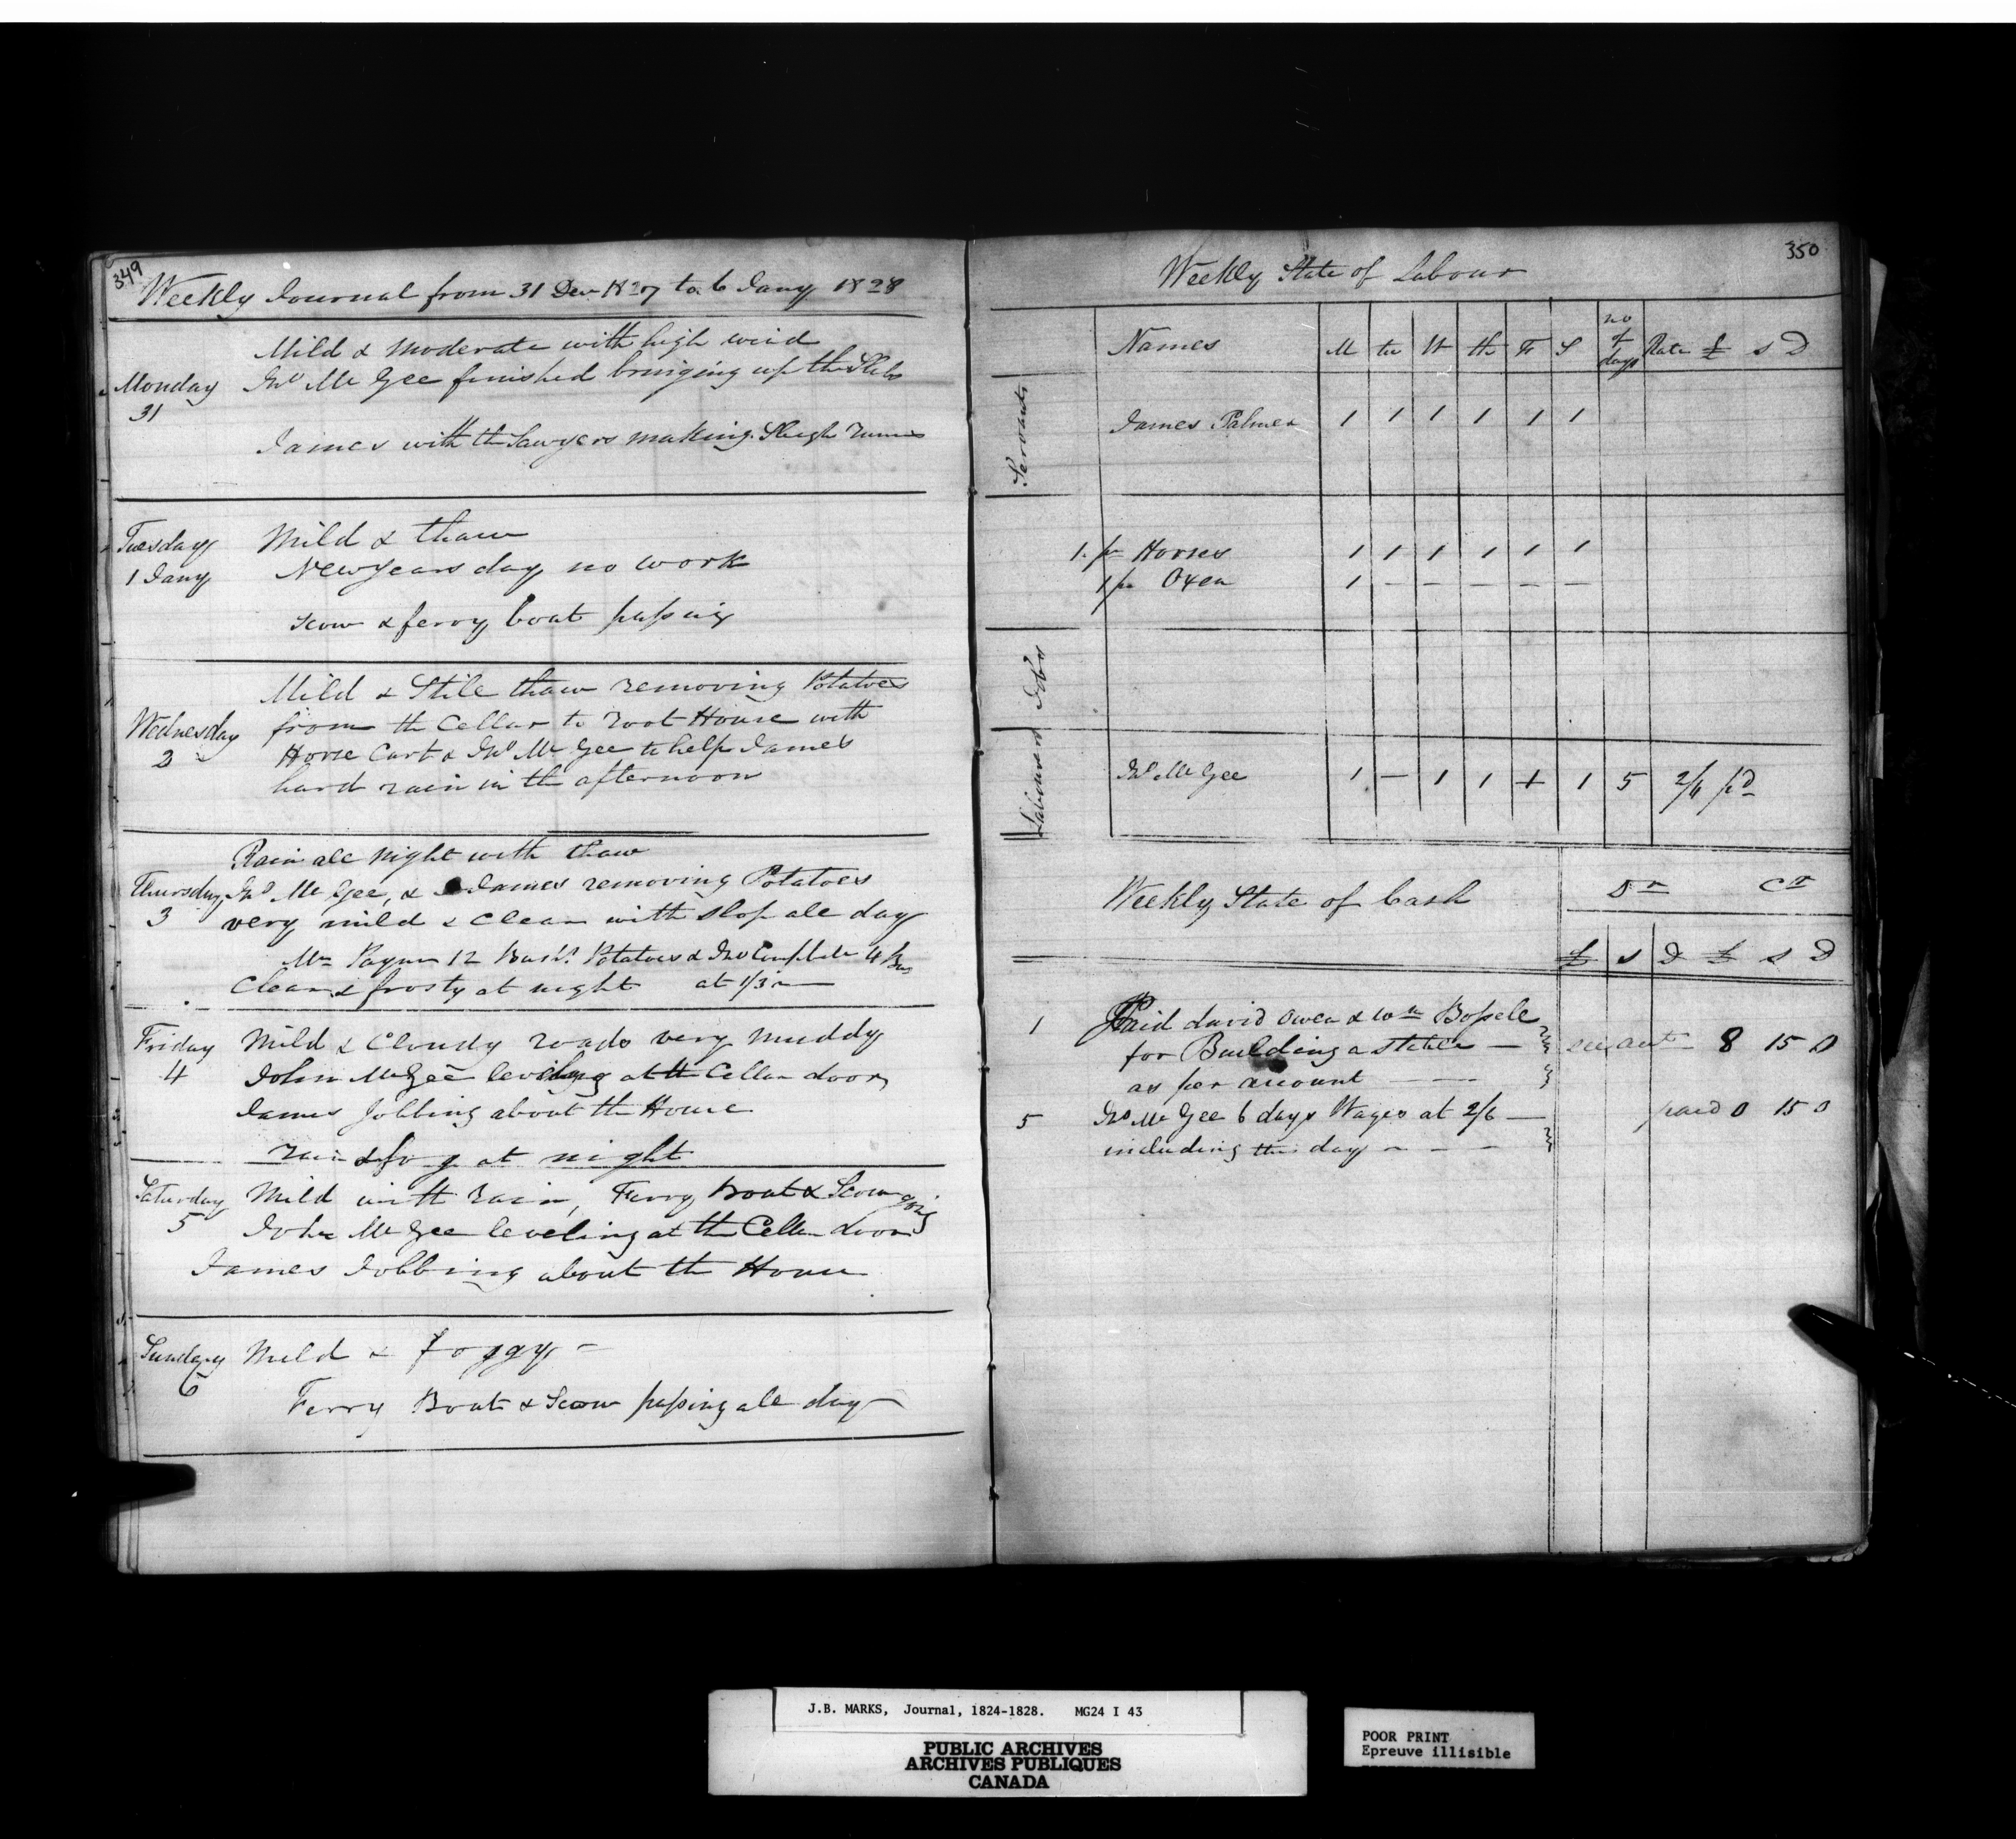 349
Weekly Journal from 31 Decr 1827 to 6 Jany 1828
Mild & Moderate with high wind
Monday Jno Mc Gee finished bringing up the Slabs
31
James with the Sawyers making Sleigh runns
Tuesday Mild & thaw
1 Jany New Years day no work
scow & ferry boat passing
Mild & Stile thaw removing Potatoes
from the Cellar to root House with
Wednesday
2 Horse Cart & Jno Mc Gee to help James
hard rain in the afternoon
Rain all night with thaw
Thursday Jno Mc Gee, & James removing Potatoes
3 very mild & Clear with slop all day
Mr 12 Bushs Potatoes & Jno 4 Bus
Clear & frosty at night at 1/3
Friday Mild & Cloudy roads very muddy
4 John McGee leveling at the Cellar door
James Jobbing about the House
rain & fog at night
Saturday Mild with rain, Ferry Boat & Scow going
5 John Mc Gee leveling at the Cellar door
James Jobbing about the House
Sunday Mild & foggy -
6
Ferry Boat & Scow passing all day
350
Weekly State of Labour
Names M tu W th Fr S no of days Rate £ s D
Servants
James Palmer 1 1 1 1 1 1
1 pr Horses 1 1 1 1 1 1
1 pr Oxen 1 - - - - -
Jobs
Labourers
Jno Mc Gee 1 - 1 1 1 1 5 2/6 pd
Weekly State of Cash Dr Cr
£ s D £ s D
1 Paid david Owen & Wm
for Building a stable - see act 8 15 0
as per account
5 Jno Mc Gee 6 days Wages at 2/6 - paid 0 15 0
including this day - - -
J.B. MARKS, Journal, 1824-1828. MG24 I 43
PUBLIC ARCHIVES
ARCHIVES PUBLIQUES
CANADA
POOR PRINT
Epreuve illisible